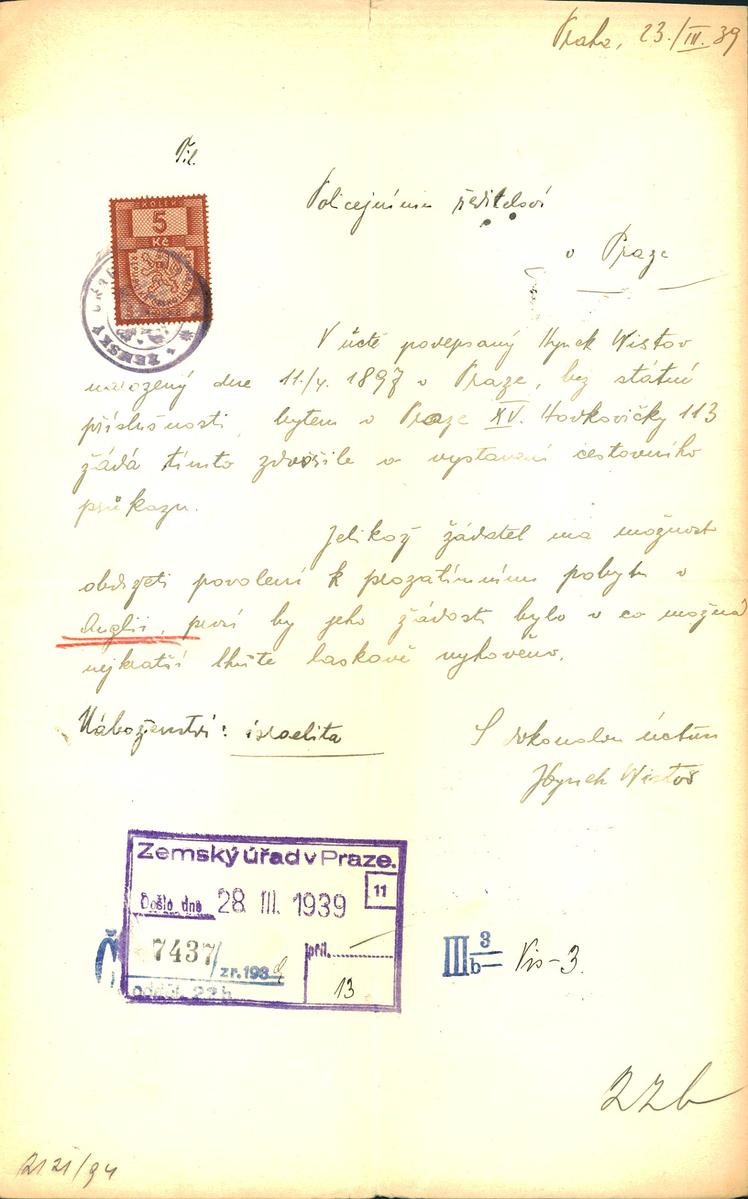 Praha, 23./III. 39
KOLEK
5
Kč
ZEMSKÝ ÚŘAD
Policejnímu ředitelsví
v Praze
V úctě podepsaný Hynek Wistoř
narozený dne 11./V. 1897 v Praze, bez státní
příslušnosti, bytem v Praze XV. Hodkovičky 113
žádá tímto zdvořile o vystavení cestovního
průkazu.
Jelikož žadatel má možnost
obdržeti povolení k prozatímnímu pobytu v
Anglii, prosí by jeho žádosti bylo v co možná
nejkratší lhůtě laskavě vyhověno.
Náboženství: israelita
S dokonalou úctou
Hynek Wistoř
Zemský úřad v Praze.
11
Došlo dne 28. III. 1939
7437/ z r. 1939
příl.
odděl. 22 b
13
III 3 b Vis-3.
22b
2121/94